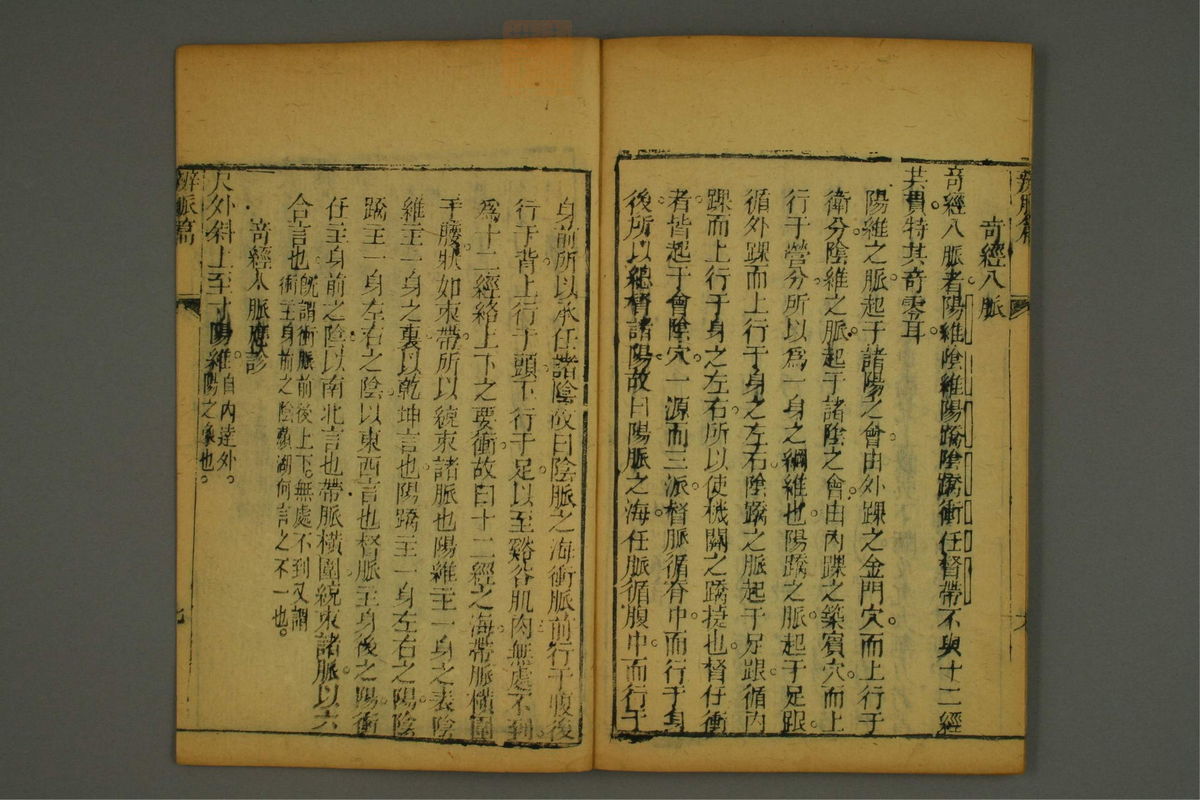 奇經八脈
奇經八脈者陽維陰維陽蹻陰蹻衝任督帶不與十二經
共貫特其奇零耳
陽維之脈起于諸陽之會由外踝之金門穴而上行于
衛分陰維之脈起于諸陰之會由內踝之築賓穴而上
行于營分所以為一身之綱維也陽蹻之脈起于足跟
循外踝而上行于身之左右陰蹻之脈起于足跟循內
踝而上行于身之左右所以使機關之蹻捷也督任衝
者皆起于會陰穴一源而三派督脈循脊中而行于身
後所以總督諸陽故曰陽脈之海任脈循腹中而行于
身前所以承任諸陰故曰陰脈之海衝脈前行于腹後
行于背上行于頭下行于足以至谿谷肌肉無處不到
為十二經絡上下之要衝故曰十二經之海帶脈橫圍
于腰狀如束帶所以統束諸脈也陽維主一身之表陰
維主一身之裏以乾坤言也陽蹻主一身左右之陽陰
蹻主一身左右之陰以東西言也督脈主身後之陽衝
任主身前之陰以南北言也帶脈橫圍統束諸脈以六
合言也既謂衝脈前後上下無處不到又謂
衝主身前之陰瀕湖何言之不一也。
奇經八脈應診
尺外斜上至寸陽維自內達外。
陽之象也。
辨脈篇
七